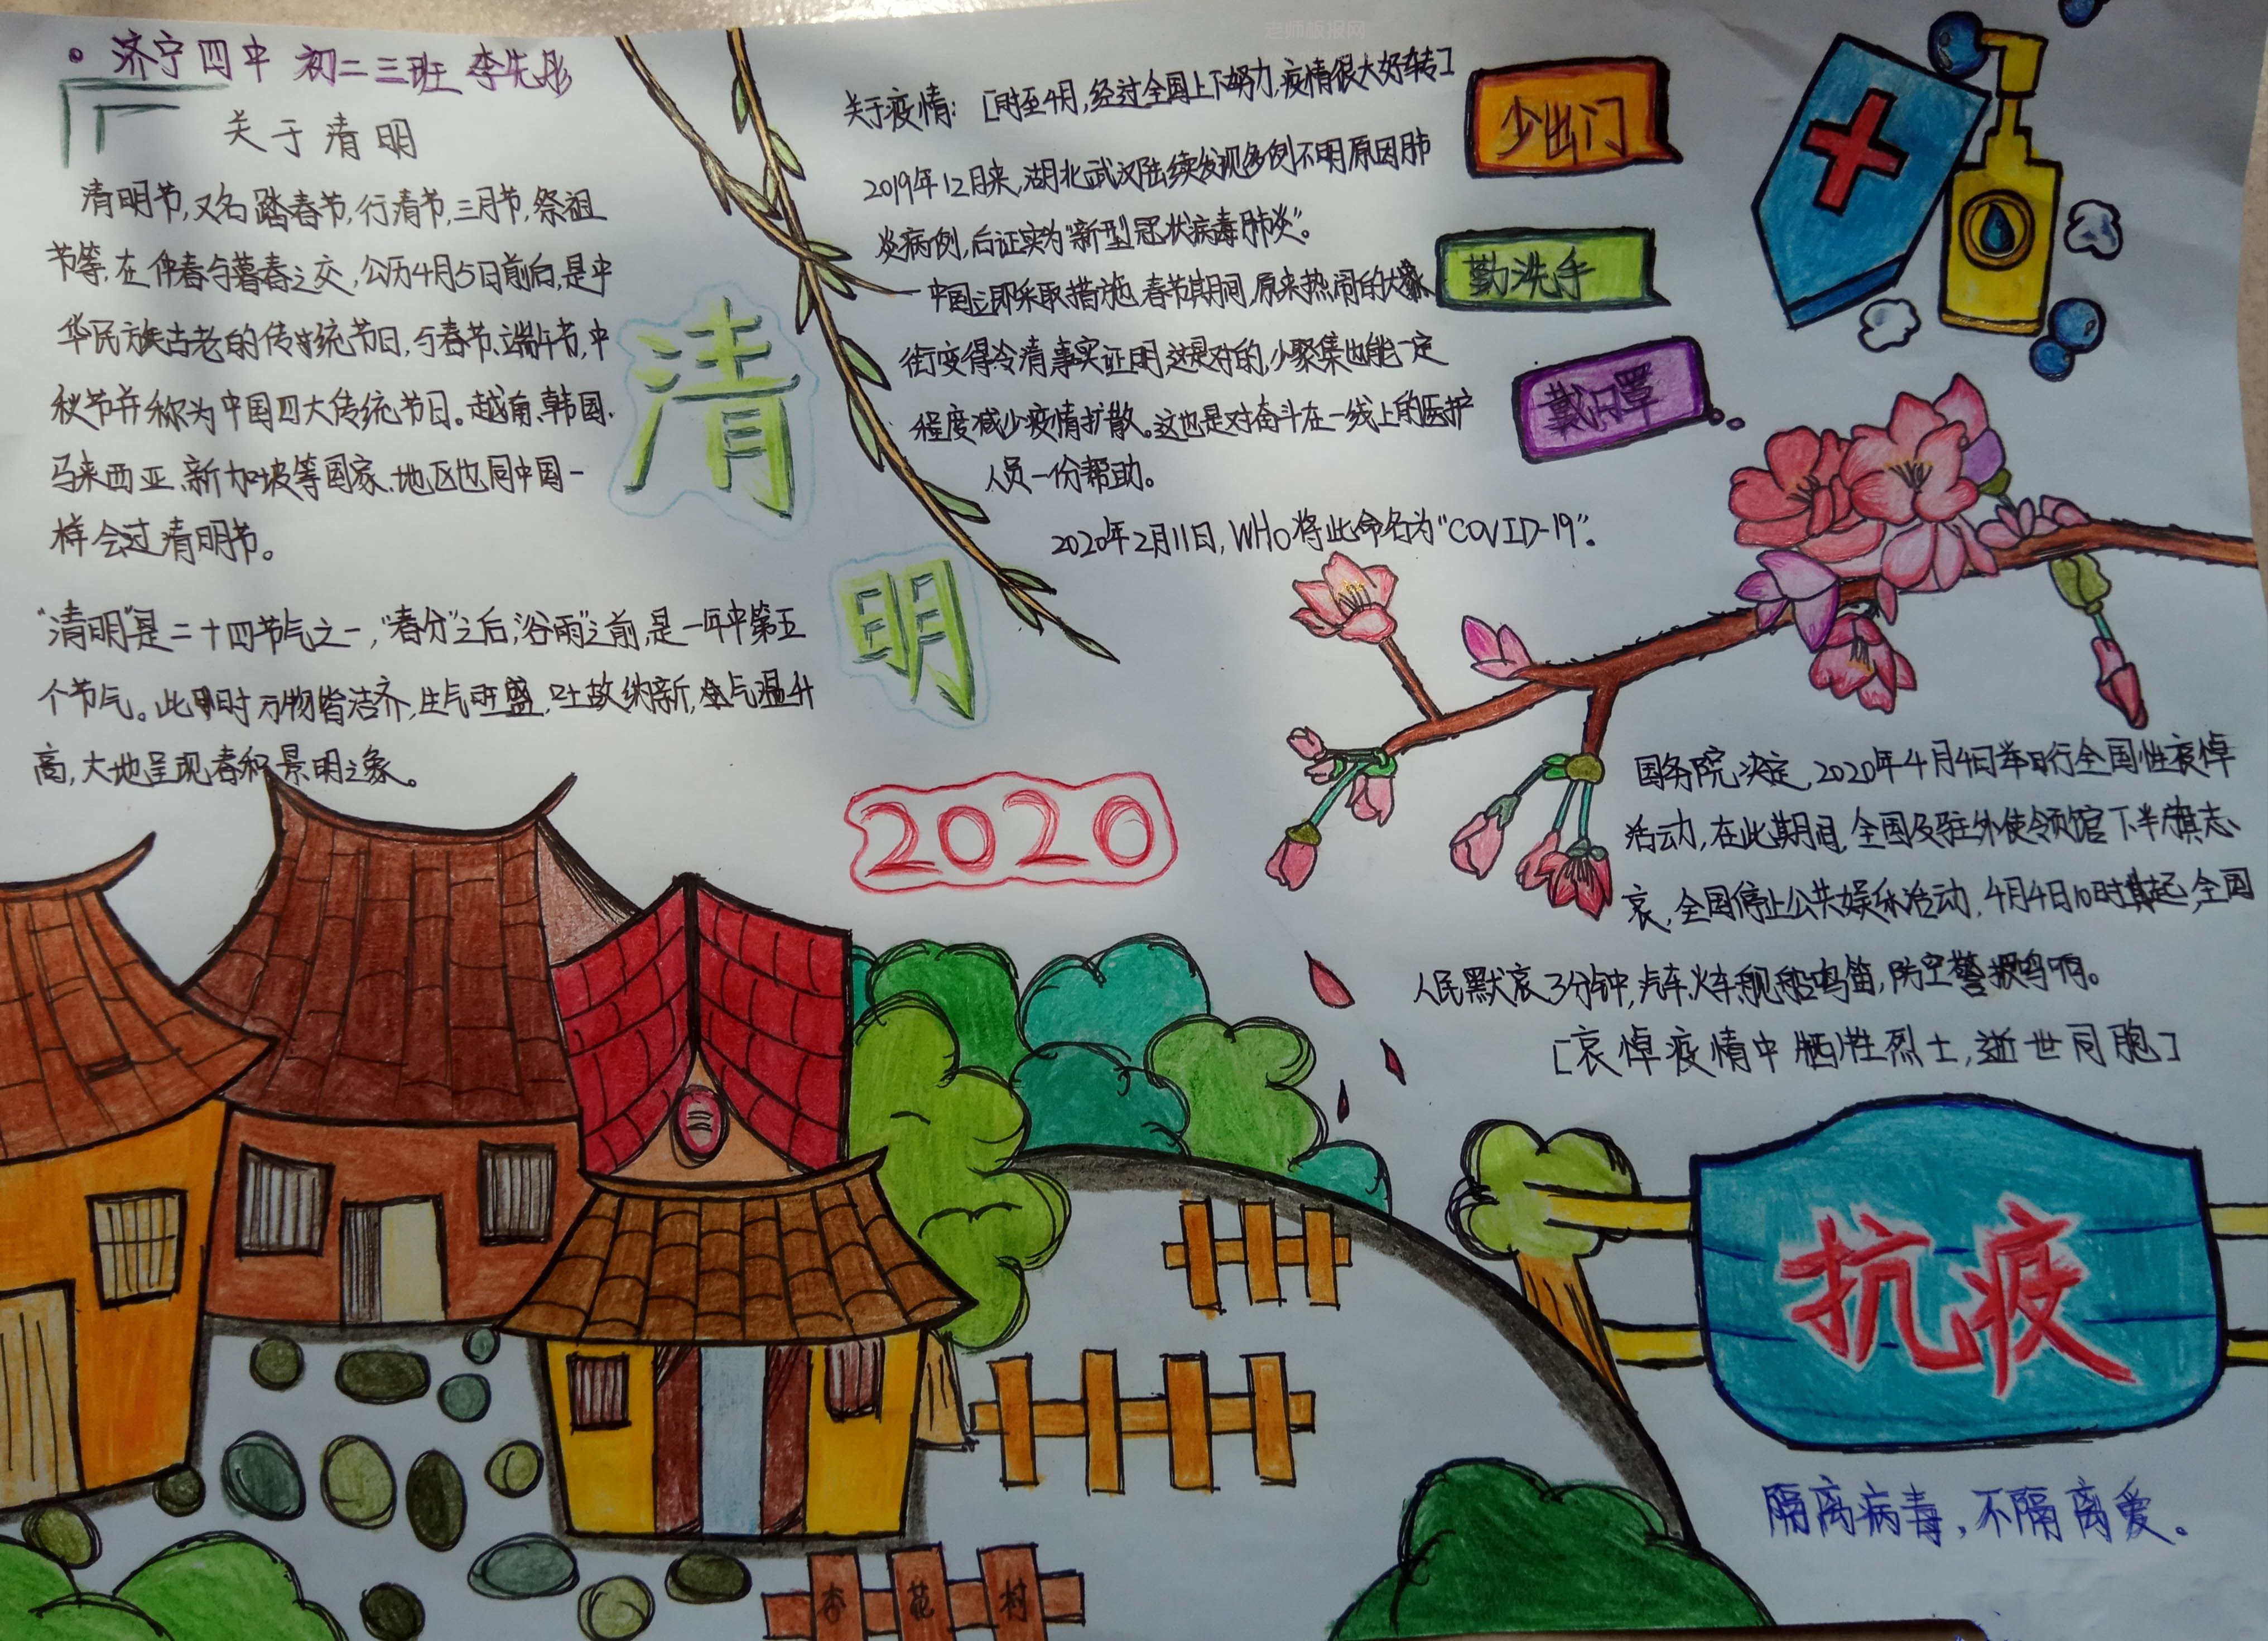 老师板报网
济宁四中 初二三班 李先彤
关于清明
清明节,又名踏春节,行清节,三月节,祭祖
节等,在仲春与暮春之交,公历4月5日前后,是中
华民族古老的传统节日,与春节、端午节,中
秋节并称为中国四大传统节日。越南、韩国、
马来西亚、新加坡等国家、地区也同中国一
样会过清明节。
“清明”是二十四节气之一,“春分”之后,“谷雨”之前,是一年中第五
个节气。此时万物皆洁齐,生气旺盛,吐故纳新,气温升
高,大地呈现春和景明之象。
清
明
2020
关于疫情:[时至4月,经过全国上下努力,疫情很大好转]
2019年12月来,湖北武汉陆续发现多例不明原因肺
炎病例,后证实为“新型冠状病毒肺炎”。
中国立即采取措施,春节期间,原来热闹的大
街变得冷清,事实证明,这是对的,少聚集也能一定
程度减少疫情扩散。这也是对奋斗在一线上的医护
人员一份帮助。
2020年2月11日,WHO将此命名为“COVID-19”.
少出门
勤洗手
戴口罩
国务院决定,2020年4月4日举行全国性哀悼
活动,在此期间,全国及驻外使领馆下半旗志
哀,全国停止公共娱乐活动,4月4日10时起,全国
人民默哀3分钟,汽车、火车、舰船鸣笛,防空警报鸣响。
[哀悼疫情中牺牲烈士,逝世同胞]
抗疫
隔离病毒,不隔离爱。
杏花村